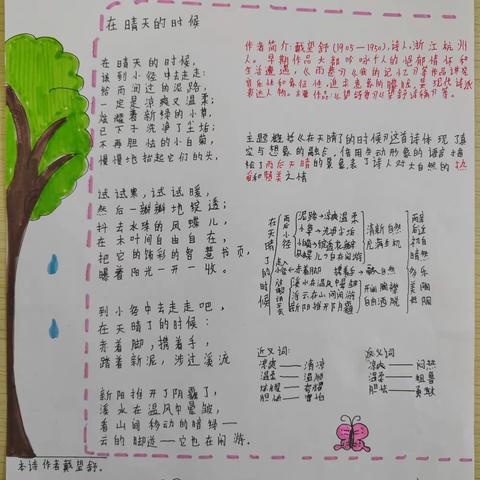 在晴天的时候
在晴天了的时候,
该到小径中去走走:
给雨润过的泥路,
一定是凉爽又温柔;
炫耀着新绿的小草,
已一下子洗净了尘垢;
不再胆怯的小白菊,
慢慢地抬起它们的头,
试试寒,试试暖,
然后一瓣瓣地绽透;
抖去水珠的凤蝶儿,
在木叶间自由自在,
把它的饰彩的智慧书页,
曝着阳光一开一收。
到小径中去走走吧,
在天晴了的时候:
赤着脚,携着手,
踏着新泥,涉过溪流
新阳推开了阴霾了,
溪水在温风中晕皱,
看山间移动的暗绿——
云的脚迹——它也在闲游。
本诗作者戴望舒。
作者简介:戴望舒(1905—1950),诗人,浙江杭州
人。早期作品大都吟咏个人的悒郁情怀和
音乐性和象征性,追求意象的朦胧,是现代诗派
主题概括《在天晴了的时候》这首诗体现了真
实与想象的融合,借用生动形象的语言描
绘了雨后天晴的景象表了诗人对大自然的热
爱和赞美之情
在天晴了的时候
雨后小径
泥路→凉爽温柔
小草→洗净尘垢
凤蝶儿→自在闲游
清新自然
充满生机
赤着脚 携着手→融入自然
溪水在温风中晕皱
新阳推开阴霾
开阔胸襟
自由洒脱
近义词:
凉爽——清凉
温柔——温顺
炫耀——夸耀
胆怯——害怕
反义词
凉爽——闷热
温柔——粗鲁
胆怯——勇敢